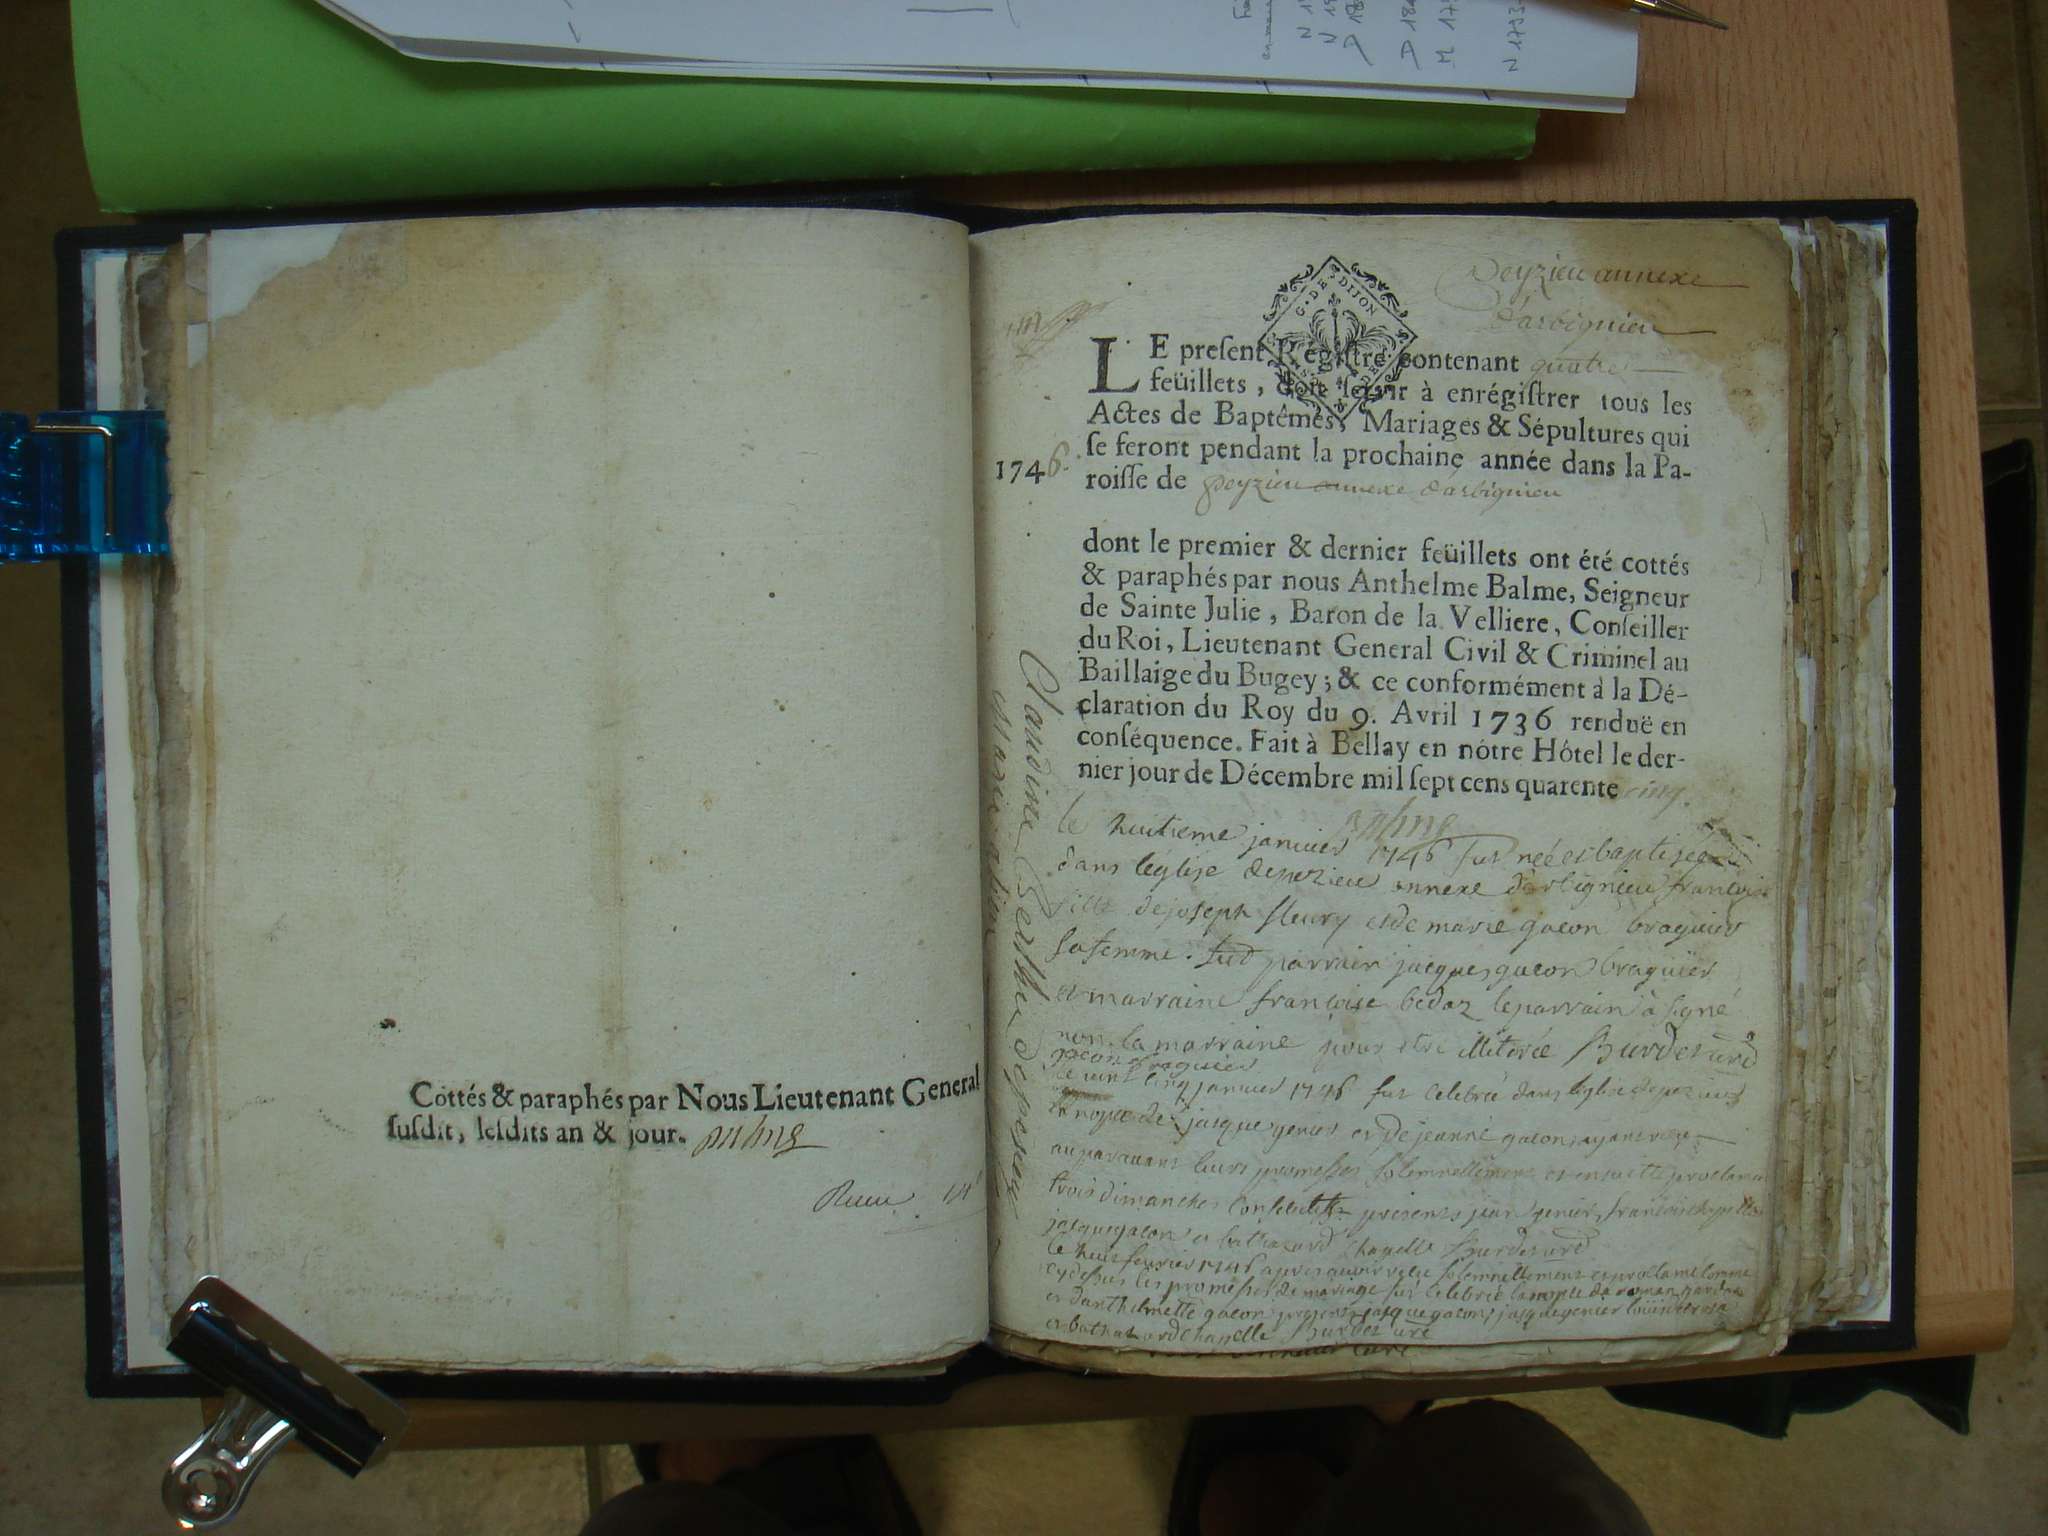 Cottés & paraphés par Nous Lieutenant General
susdit, lesdits an & jour. Balme
Peyzieu annexe
d'arbignieu
G. DE DIJON
LE present Régistre contenant quatre
feüillets, doit servir à enrégistrer tous les
Actes de Baptêmes, Mariages & Sépultures qui
se feront pendant la prochaine année dans la Pa-
1746.
roisse de peyzieu annexe d'arbignieu
dont le premier & dernier feüillets ont été cottés
& paraphés par nous Anthelme Balme, Seigneur
de Sainte Julie, Baron de la Velliere, Conseiller
du Roi, Lieutenant General Civil & Criminel au
Baillaige du Bugey; & ce conformément à la Dé-
claration du Roy du 9. Avril 1736 renduë en
conséquence. Fait à Bellay en nótre Hôtel le der-
nier jour de Décembre mil sept cens quarente cinq.
Balme
le huitieme janvier 1746 fut neé et baptiseé
dans l'église de pezieu annexe d'arbignieu françoise
fille de joseph fleury et de marie gacon braguier
sa femme. fut parrain jacques gacon braguier
et marraine françoise bedoz le parrain à signé
non la marraine pour etre illiterée Burdet curé
gacon braguier
le vint cinq janvier 1746 fut celebré dans l'eglise de pezieu
la nopce de jacque genier et de jeanne gacon, ayant reçu
auparavant leurs promesses solemnellement et ensuitte proclamé
trois dimanches consecutifs presents jean genier, françois chapelle
jacque gacon et bathazard chapelle Burdet curé
le huit fevrier 1746 apres avoir reçu solemnellement et proclamé comme
cy dessus les promesses de mariage fut celebrée la nopce de roman
et d'anthelmette gacon presents jacque gacon, jacque genier
et bathazard chapelle Burdet curé
Claudine Berthier de peseux
Marie